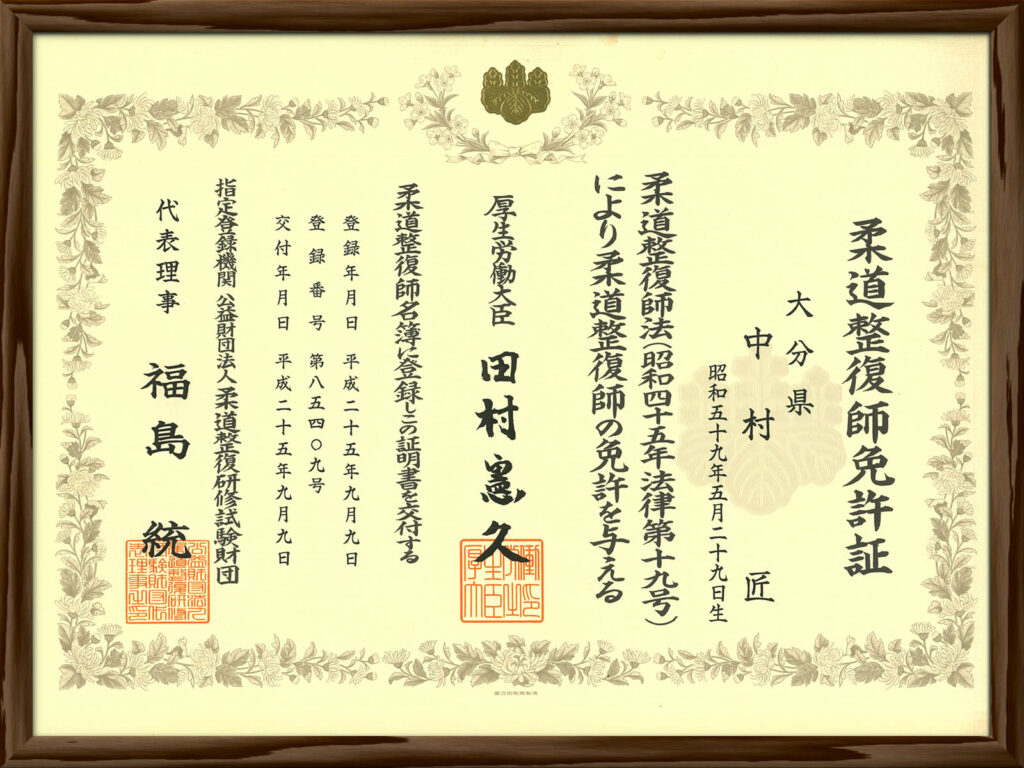 柔道整復師免許証
大分県
中村 匠
昭和五十九年五月二十九日生
柔道整復師法(昭和四十五年法律第十九号)
により柔道整復師の免許を与える
厚生労働大臣 田村憲久
柔道整復師名簿に登録しこの証明書を交付する
登録年月日 平成二十五年九月九日
登録番号 第八五四〇九号
交付年月日 平成二十五年九月九日
指定登録機関 公益財団法人柔道整復研修試験財団
代表理事 福島 統